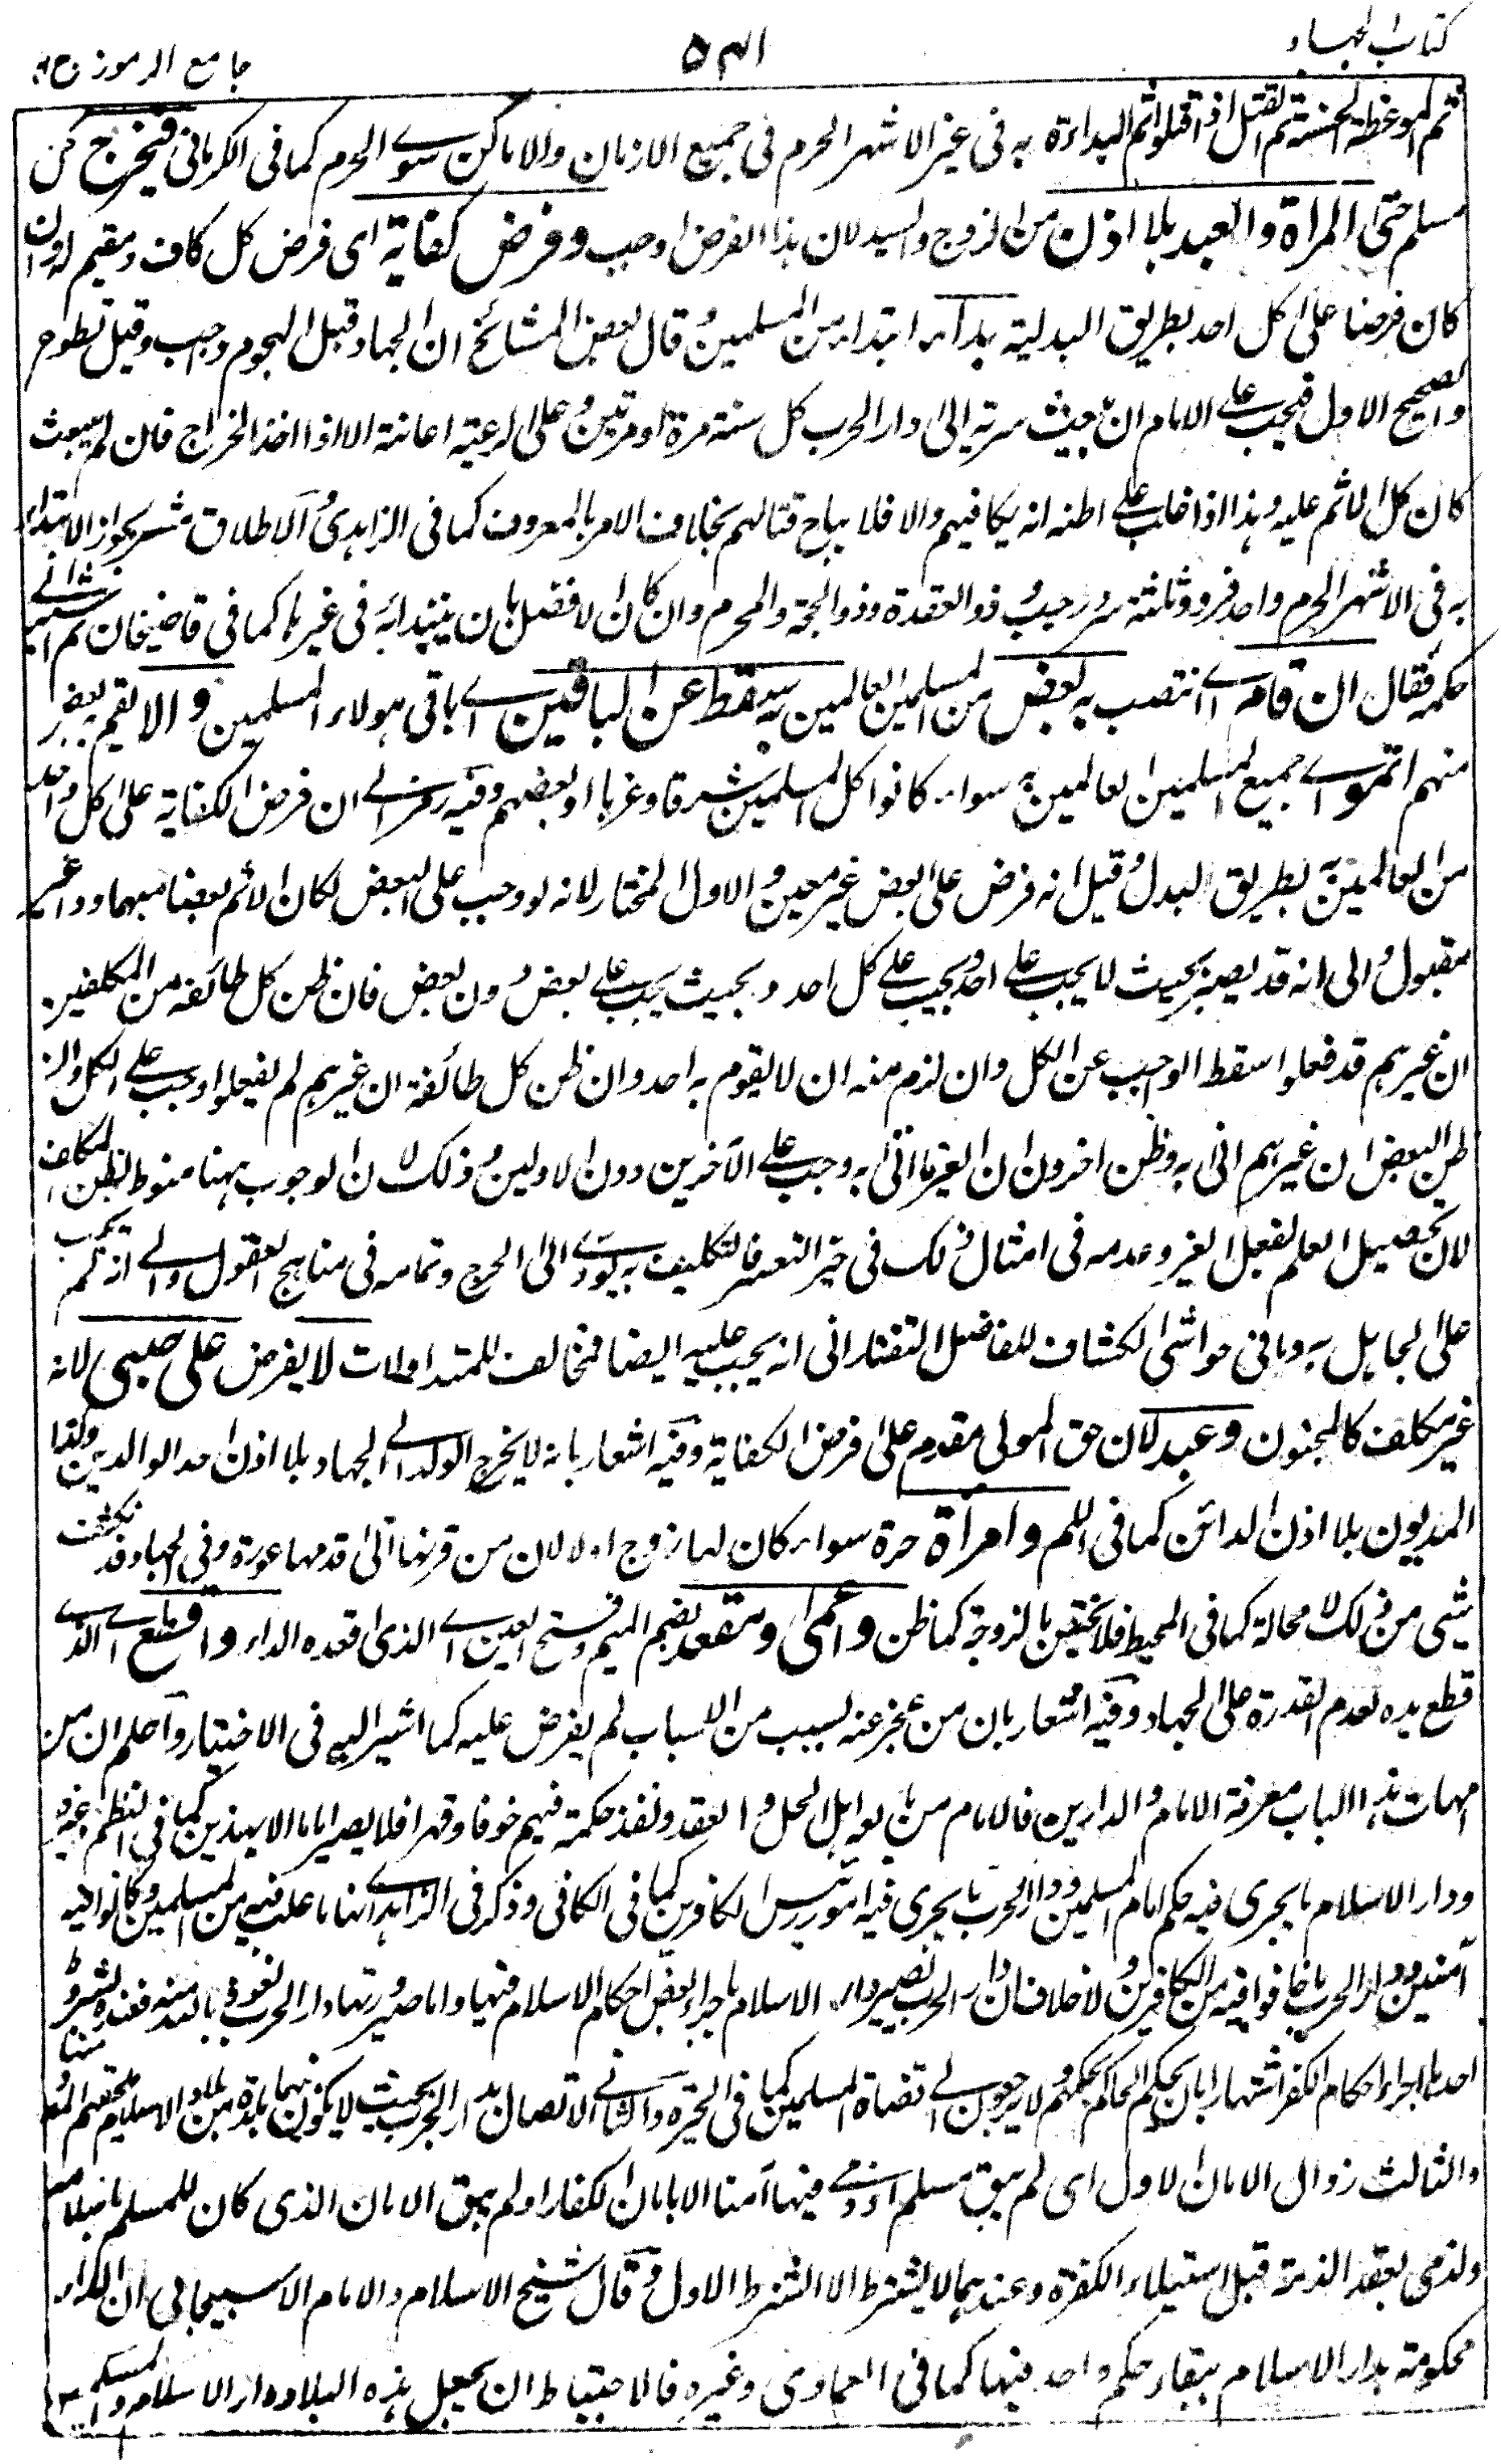 كتاب الجهاد
٥٤١
جامع الرموز ج٢
ثم الموعظة الحسنة ثم القتل اذا قتلوا ثم البداءة به فى غير الاشهر الحرم فى جميع الازمان والاماكن سوى الحرم كما فى الكرمانى فيخرج كل
مسلم حتى المرأة والعبد بلا اذن من الزوج والسيد لان هذا الفرض اوجب وفرض كفاية اى فرض كل كاف ومقيم له وان
كان فرضا على كل احد بطريق البدلية بدأ اى ابتداء من المسلمين وقال بعض المشائخ ان الجهاد قبل الهجوم واجب وقيل تطوع
والصحيح الاول فيجب على الامام ان يبعث سرية الى دار الحرب كل سنة مرة او مرتين وعلى الرعية اعانته الا اذا اخذ الخراج فان لم يبعث
كان كل الاثم عليه وهذا اذا غلب على ظنه انه يكافيهم والا فلا يباح قتالهم بخلاف الامر بالمعروف كما فى الزاهدى والاطلاق مشير بجواز الابتداء
به فى الاشهر الحرم واحد فرد وثلثة سرد رجب وذو القعدة وذو الحجة والمحرم وان كان الافضل بان يبتدأ به فى غيرها كما فى قاضيخان ثم اشير الى
حكمه فقال ان قام اى انتصب به بعض من المسلمين العالمين به سقط عن الباقين اى باقى هؤلاء المسلمين والا يقم به بعض
منهم اثموا اى جميع المسلمين العالمين به سواء كانوا كل المسلمين شرقا وغربا او بعضهم وفيه رمز الى ان فرض الكفاية على كل واحد
من العالمين به بطريق البدل وقيل انه فرض على بعض غير معين والاول المختار لانه لو وجب على البعض لكان الاثم بعضا مبهما وذا غير
مقبول والى انه قد يصير بحيث لا يجب على احد وبحيث يجب على كل احد وبحيث يجب على بعض دون بعض فان ظن كل طائفة من المكلفين
ان غيرهم قد فعلوا سقط الوجب عن الكل وان لزم منه ان لا يقوم به احد وان ظن كل طائفة ان غيرهم لم يفعلوا وجب على الكل وان
ظن البعض ان غيرهم اتى به وظن اخرون ان الغير ما اتى به وجب على الآخرين دون الاولين وذلك لان الوجوب ههنا منوط بظن المكلف
لان تحصيل العلم بفعل الغير وعدمه فى امثال ذلك فى حيز التعسر فالتكليف به يؤدى الى الحرج وتمامه فى مناهج العقول والى انه لم يجب
على الجاهل به وما فى حواشى الكشاف للفاضل التفتازانى انه يجب عليه ايضا فمخالف للمتداولات لا يفرض على صبى لانه
غير مكلف كالمجنون وعبد لان حق المولى مقدم على فرض الكفاية وفيه اشعار بانه لا يخرج الولد الى الجهاد بلا اذن احد الوالدين وكذا
المديون بلا اذن الدائن كما فى النظم وامرأة حرة سواء كان لها زوج او لا لان من قرنها الى قدمها عورة وفى الجهاد قد ينكشف
شئ من ذلك لا محالة كما فى المحيط فلا يختص بالزوجة كما ظن واعمى ومقعد بضم الميم وفتح العين اى الذى اقعده الداء واقطع اى الذى
قطع يده لعدم القدرة على الجهاد وفيه اشعار بان من عجز عنه لسبب من الاسباب لم يفرض عليه كما اشير اليه فى الاختيار واعلم ان من
امهات هذا الباب معرفة الامام والدارين فالامام من بايعه اهل الحل والعقد ونفذ حكمه فيهم خوفا وقهرا فلا يصير اماما الا بهذين كما فى النظم وغيره
ودار الاسلام ما يجرى فيه حكم امام المسلمين ودار الحرب ما يجرى فيه امر رئيس الكافرين كما فى الكافى وذكر فى الزاهدى انها ما غلب فيه من المسلمين وكانوا فيه
آمنين ودار الحرب ما خافوا فيه من الكافرين ولا خلاف ان دار الحرب تصير دار الاسلام باجراء بعض احكام الاسلام فيها واما صيرورتها دار الحرب نعوذ بالله منه فعنده بشروط
احدها اجراء احكام الكفر اشتهارا بان يحكم الحاكم بحكمهم ولا يرجعون الى قضاة المسلمين كما فى الحيرة والثانى الاتصال بدار الحرب بحيث لا يكون بينهما بلدة من بلاد الاسلام
والثالث زوال الامان الاول اى لم يبق مسلم او ذمى فيها آمنا الا بامان الكفار او لم يبق الامان الذى كان للمسلم باسلامه
ولذمى بعقد الذمة قبل استيلاء الكفرة وعندهما لا يشترط الا الشرط الاول وقال شيخ الاسلام والامام الاسبيجابى ان الدار
محكومة بدار الاسلام ببقاء حكم واحد فيها كما فى العمادى وغيره فالاحتياط ان يجعل هذه البلاد دار الاسلام